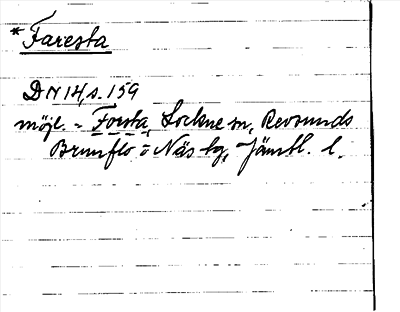 *Faresta
DN 14, s. 159
möjl. = Forsta, Lockne sn, Revsunds
Brunflo o Näs tg, Jämtl. l.